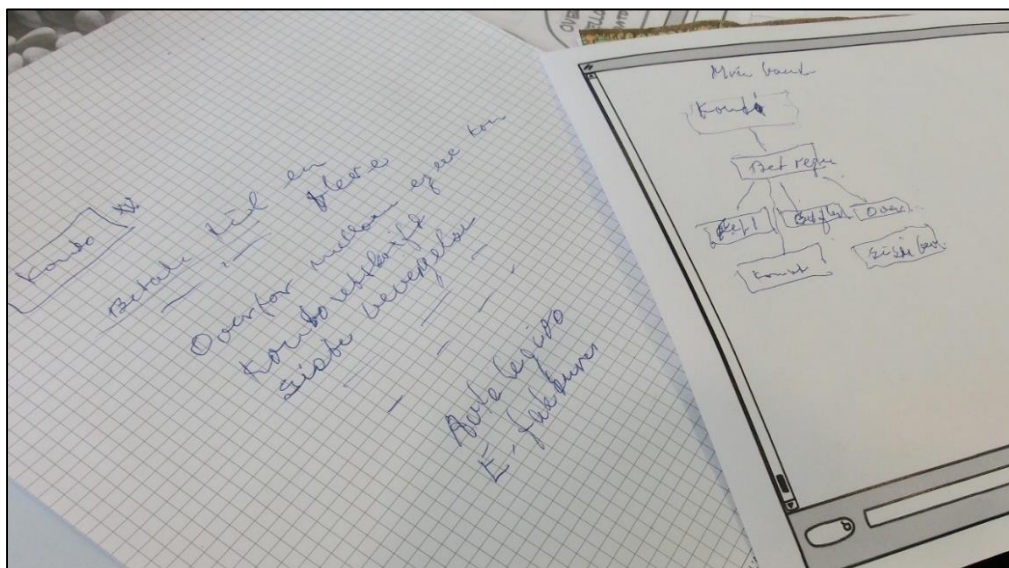 Konto
Betale til en
flere
Overfør mellom egne kon
Kontoutskrift
Siste bevegelser
Avtalegiro
E-faktura
OVE
Min bank
Konto
Bet regn
Bet 1
Bet fler
Over
Kontout
Siste bev